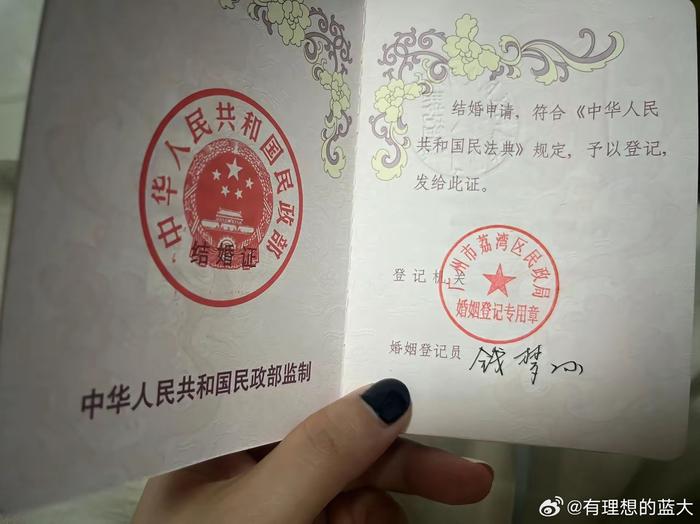 中华人民共和国民政部
结婚证
中华人民共和国民政部监制
结婚申请，符合《中华人民
共和国民法典》规定，予以登记，
发给此证。
登记机关
广州市荔湾区民政局
婚姻登记专用章
婚姻登记员
钱梦
@有理想的蓝大